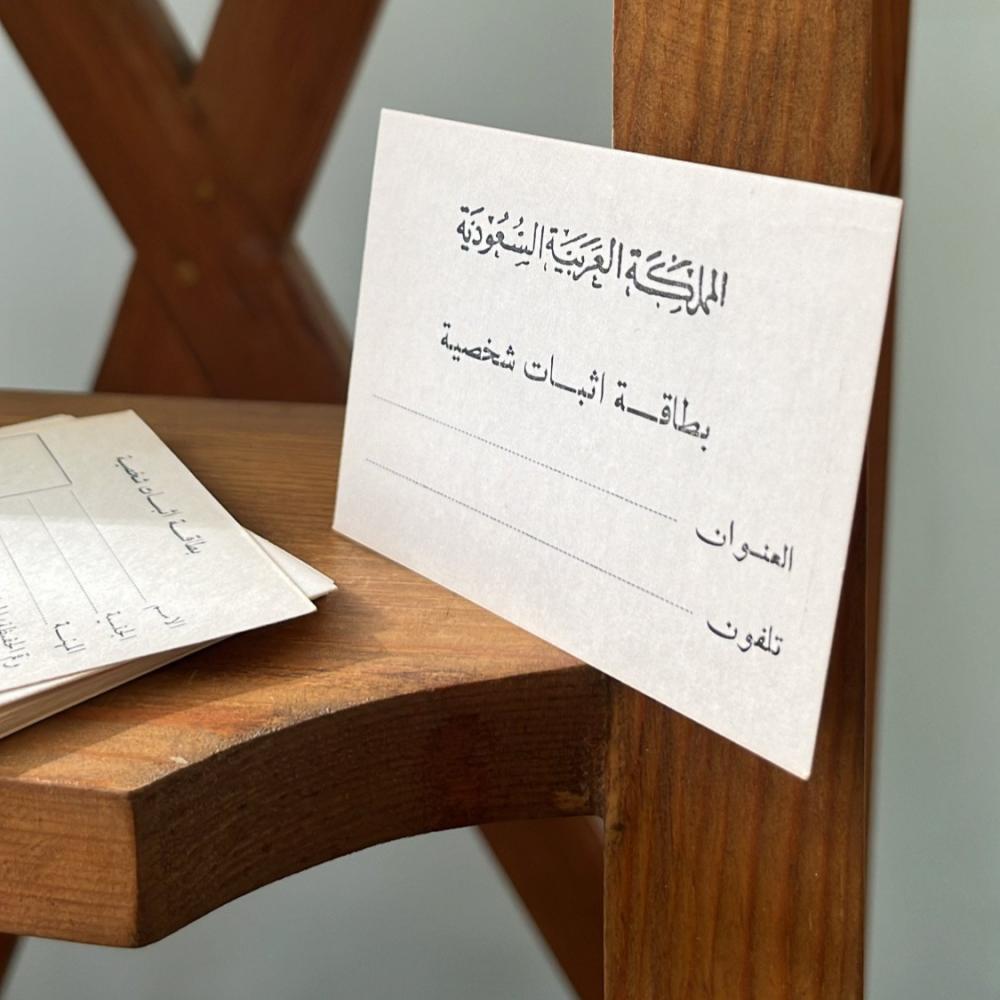 المملكة العربية السعودية
بطاقــة اثبــات شخصية
العنـوان
تلفون
بطاقــة اثبــات شخصية
الاسم
الجنسية
المهنـة